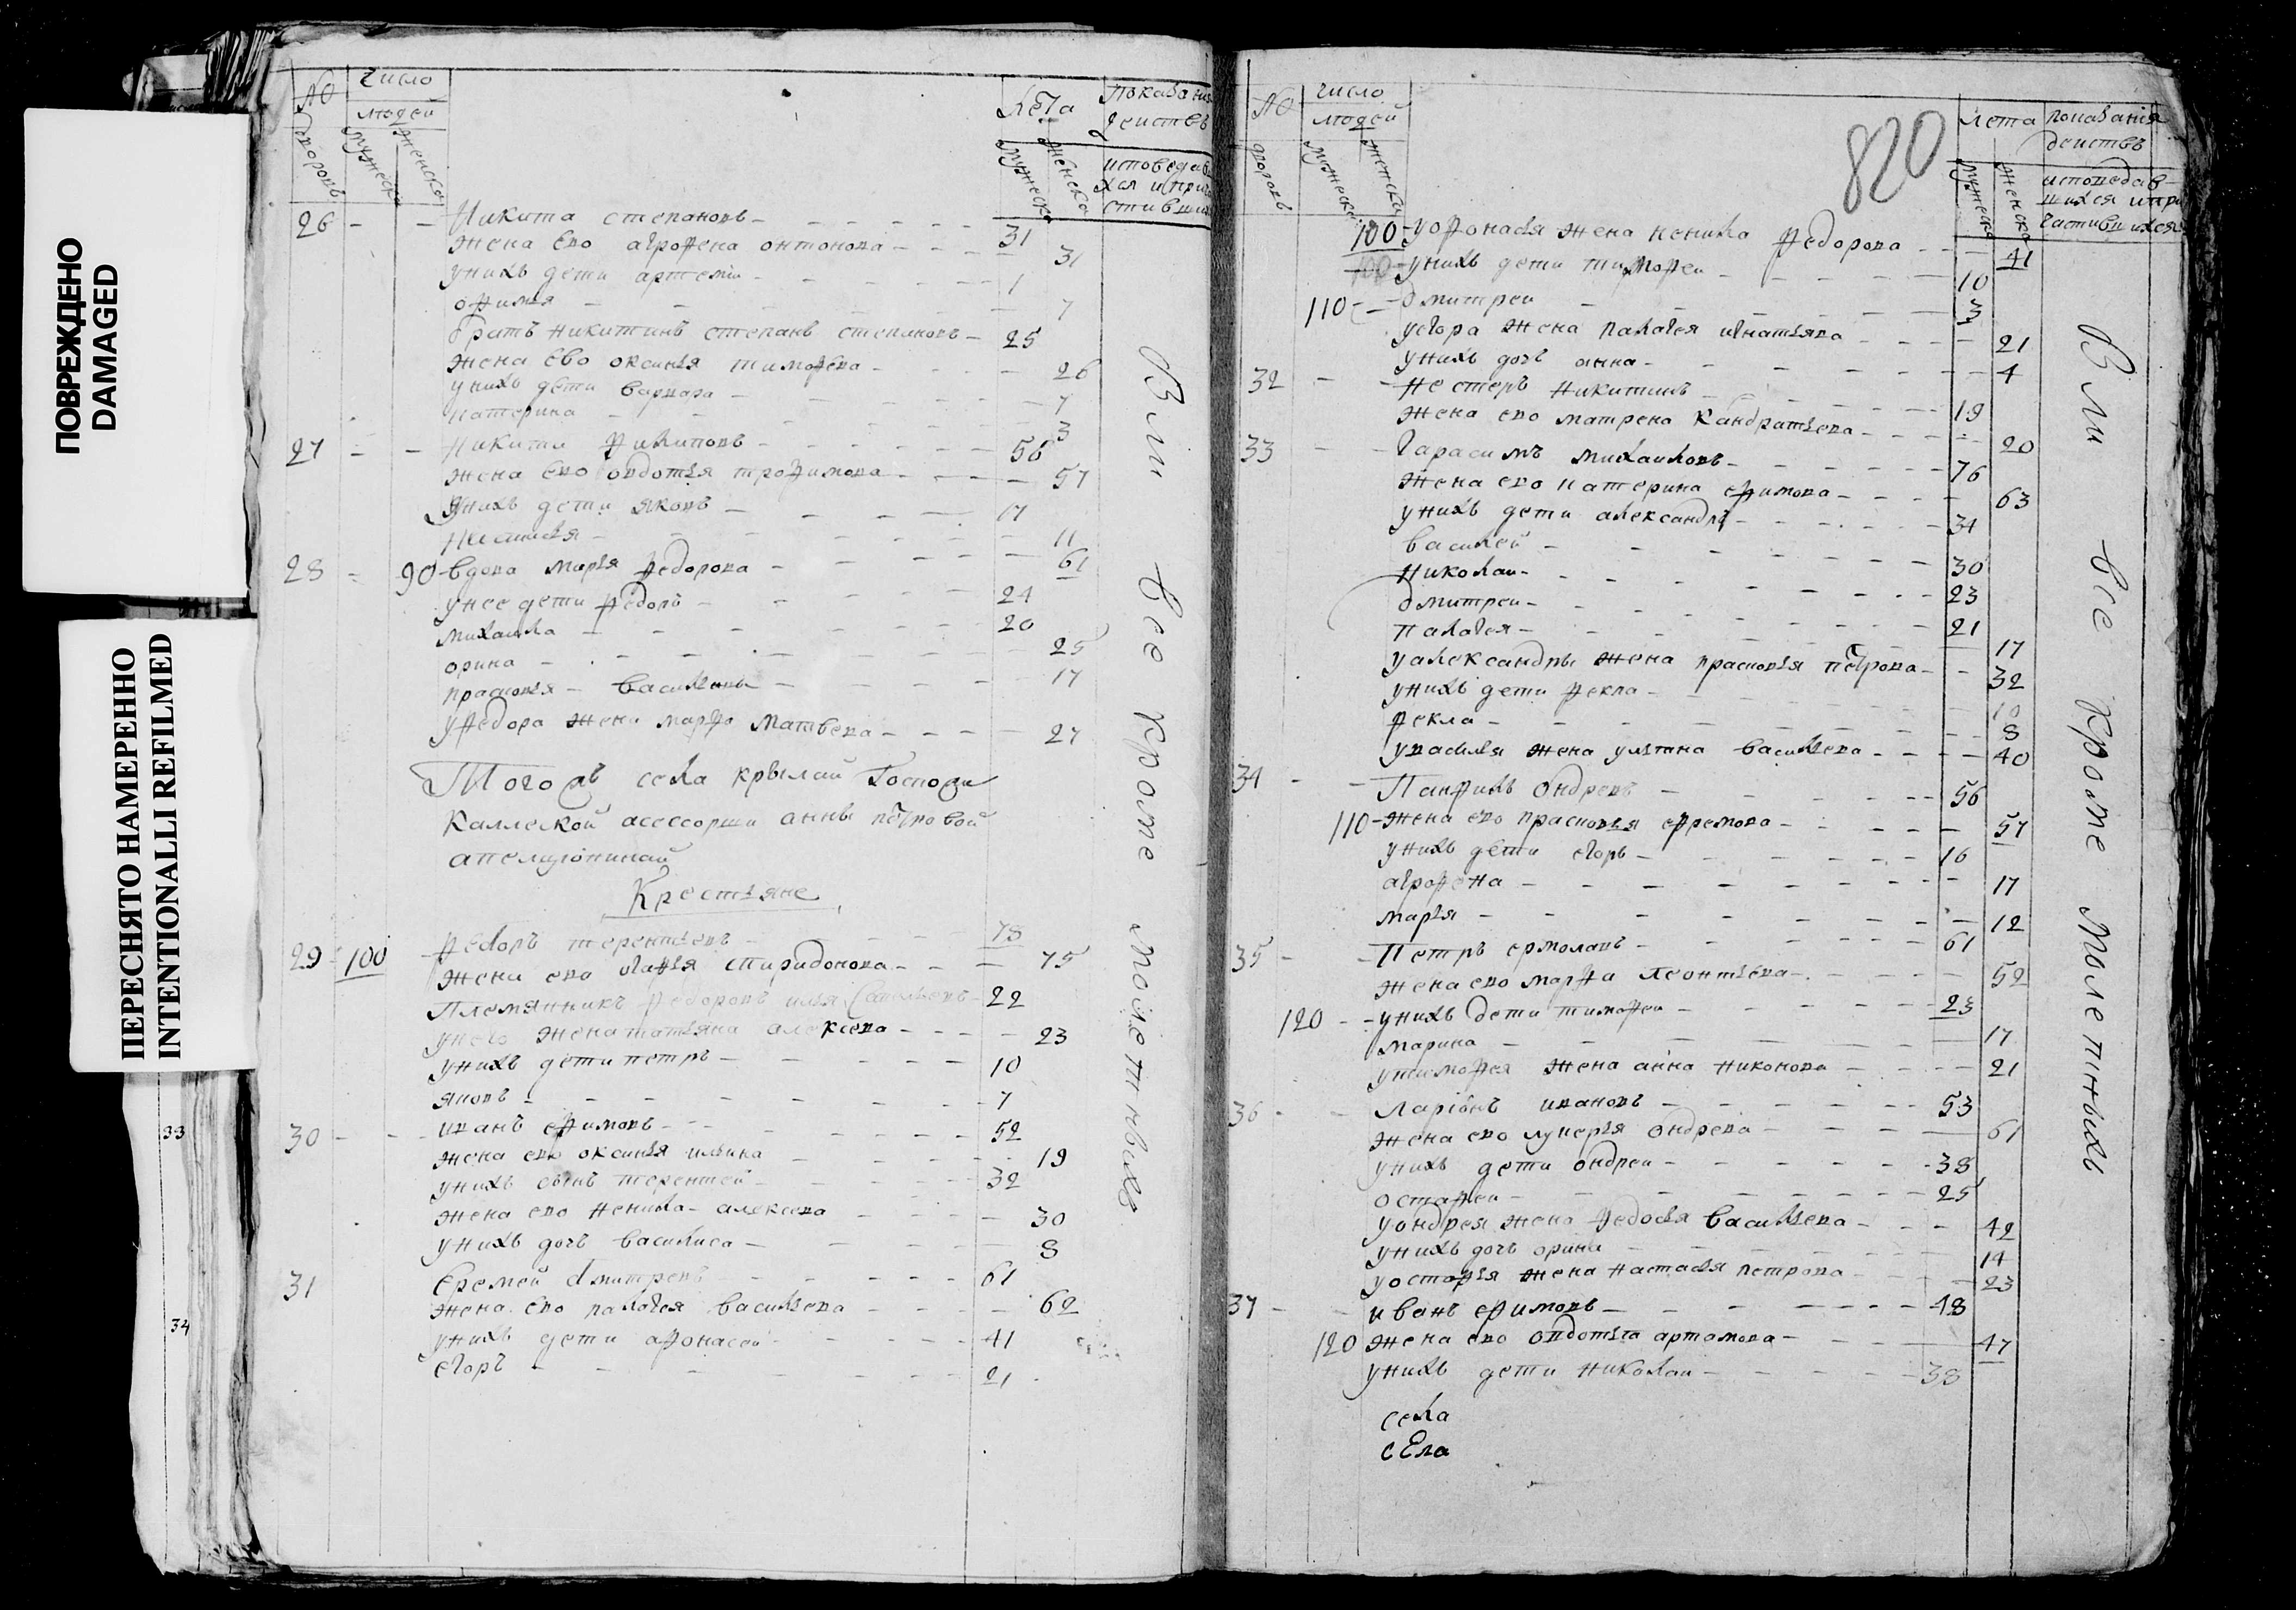 ПОВРЕЖДЕНО
DAMAGED
ПЕРЕСНЯТО НАМЕРЕННО
INTENTIONALLI REFILMED
33
34
№ дворовъ
число людей
мужеска женска
лета
мужеска женска
показания действъ
исповедав
хся и прича
стивших
26 - - Никита степановъ - 31
жена ево агрофена онтонова - 31
у нихъ дети артеми - 1
офимя - 7
братъ никитинъ степанъ степановъ - 25
жена ево оксинья тимофева - 26
у нихъ дети варвара - 7
катерина - 3
27 - - Никита филиповъ - 56
жена ево овдотья трофимова - 57
у нихъ дети яковъ - 17
- 11
28 - 90 - вдова марья федорова - 61
у нее дети федоръ - 24
михаила - 20
орина - 25
прасковья - васильевы - 17
у федора жена марфа матвеева - 27
Того жъ села крылай Госпожи
Каллеской асессорши анны петровой
Крестьяне
29 - 100 федоръ терентьевъ - 78
жена ево огафья спиридонова - 75
Племянникъ федоровъ илья - 22
у него жена татьяна алексева - 23
у нихъ дети петръ - 10
яковъ - 7
30 - - иванъ ефимовъ - 52
жена ево оксинья ильина - 19
у нихъ сынъ терентей - 32
жена ево ненила алексева - 30
у нихъ дочь василиса - 8
31 Еремей дмитревъ - 61
жена ево палагея васильева - 62
у нихъ дети афонасей - 41
егоръ - 21
Вли все кроме малетныхъ
820
№ дворовъ
число людей
мужеска женска
лета
мужеска женска
показания действъ
исповедав
шихся и при
частившихся
100 - у офонасья жена ненила федорова - 41
100 - у нихъ дети тимофеи - 10
110 - дмитреи - 3
у егора жена палагея игнатьява - 21
у нихъ дочь анна - 4
32 - - нестеръ никитинъ - 19
жена ево матрена кандратьева - 20
33 - Гарасимъ михаиловъ - 76
жена ево катерина ефимова - 63
у нихъ дети александръ - 34
василей - 30
николаи - 23
дмитреи - 21
палагея - 17
у александры жена прасковья петрова - 32
у нихъ дети фекла - 10
фекла - 8
у василья жена ульяна васильева - 40
34 - - Панфилъ ондревъ - 56
110 - жена ево прасковья ефремова - 57
у нихъ дети егоръ - 16
агрофена - 17
марья - 12
35 - - Петръ ермолавъ - 61
жена ево марфа леонтьева - 52
120 - - у нихъ дети тимофеи - 23
марина - 17
у тимофея жена анна никонова - 21
36 - - Ларiонъ ивановъ - 53
жена ево лукерья ондрева - 61
у нихъ дети ондреи - 38
остафеи - 25
у ондрея жена федосья васильева - 42
у нихъ дочь орина - 14
у остафья жена настасья петрова - 23
37 - - иванъ ефимовъ - 48
120 жена ево овдотья артамова - 47
у нихъ дети николаи - 38
села
сЕла
Вли все кроме малетныхъ